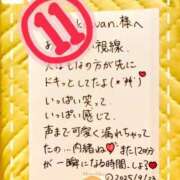 ⑪
van.様へ
視線。
の方が先に
ドキッとしてたよ(*´艸`)
いっぱい笑って、
いっぱい感じて、
声まで可愛く漏れちゃってた
の…内緒ね また120分
が一瞬になる時間、しよう